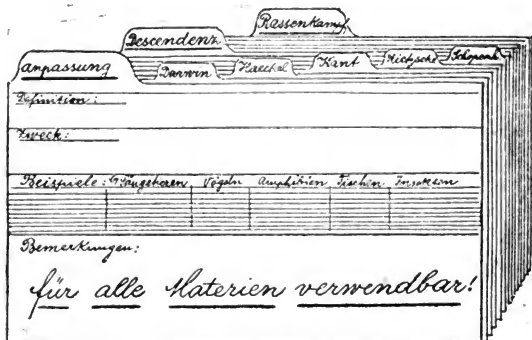 Rassenkampf
Descendenz
Anpassung Darwin Haeckel Kant Nietzsche Schopenh.
Definition:
Zweck:
Beispiele: Säugetieren Vögeln Amphibien Fischen Insekten
Bemerkungen:
für alle Materien verwendbar!